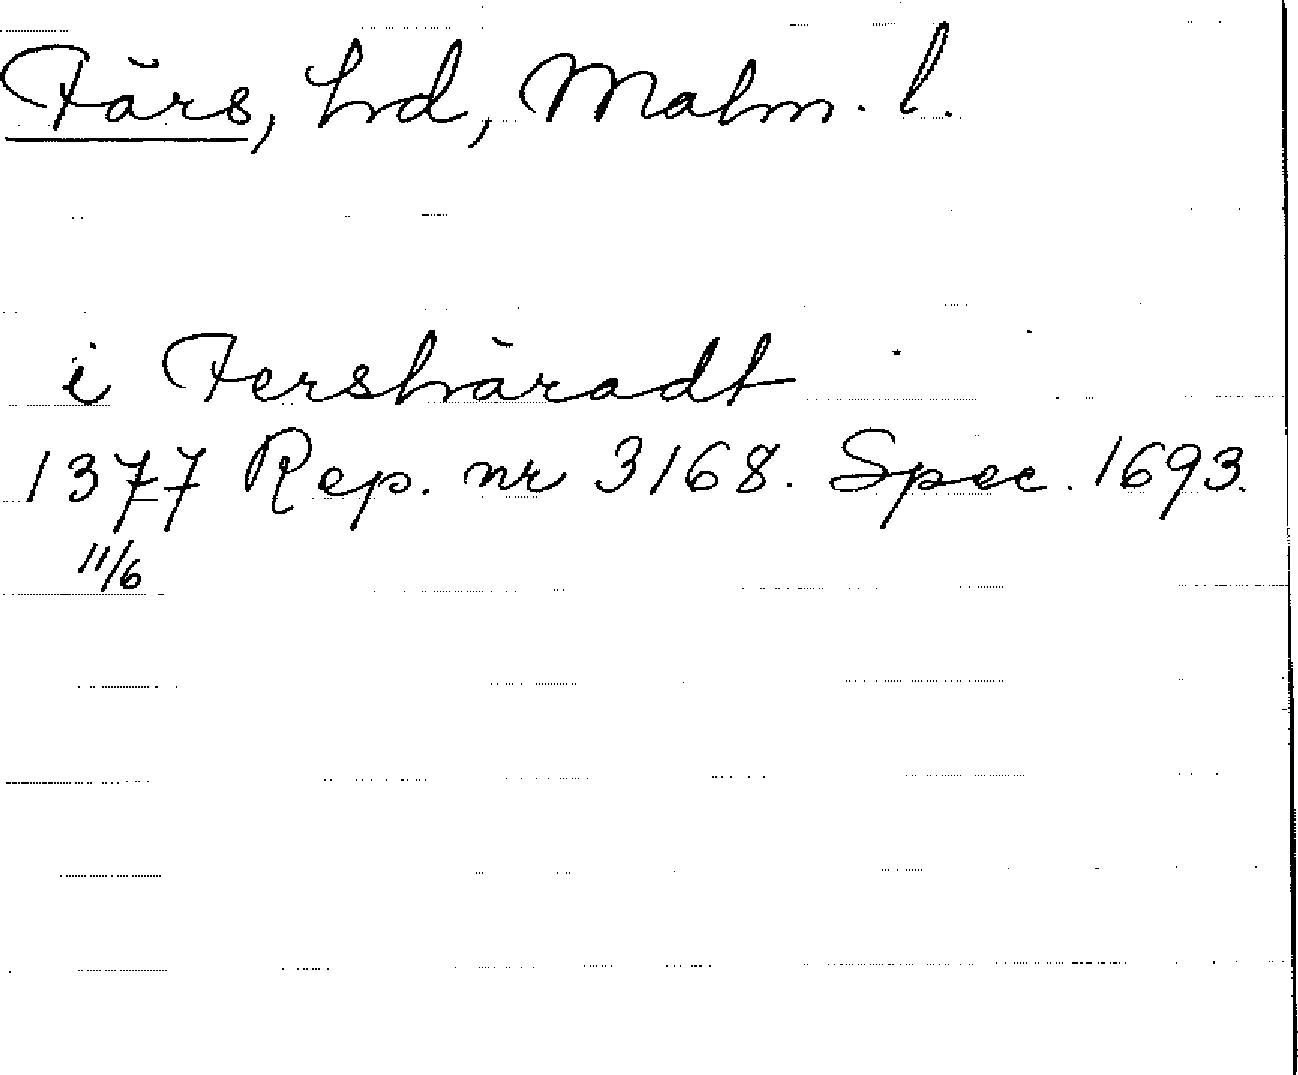 Färs, hd, Malm. l.
i Fershäradt
1377 Rep. nr 3168. Spec. 1693.
11/6